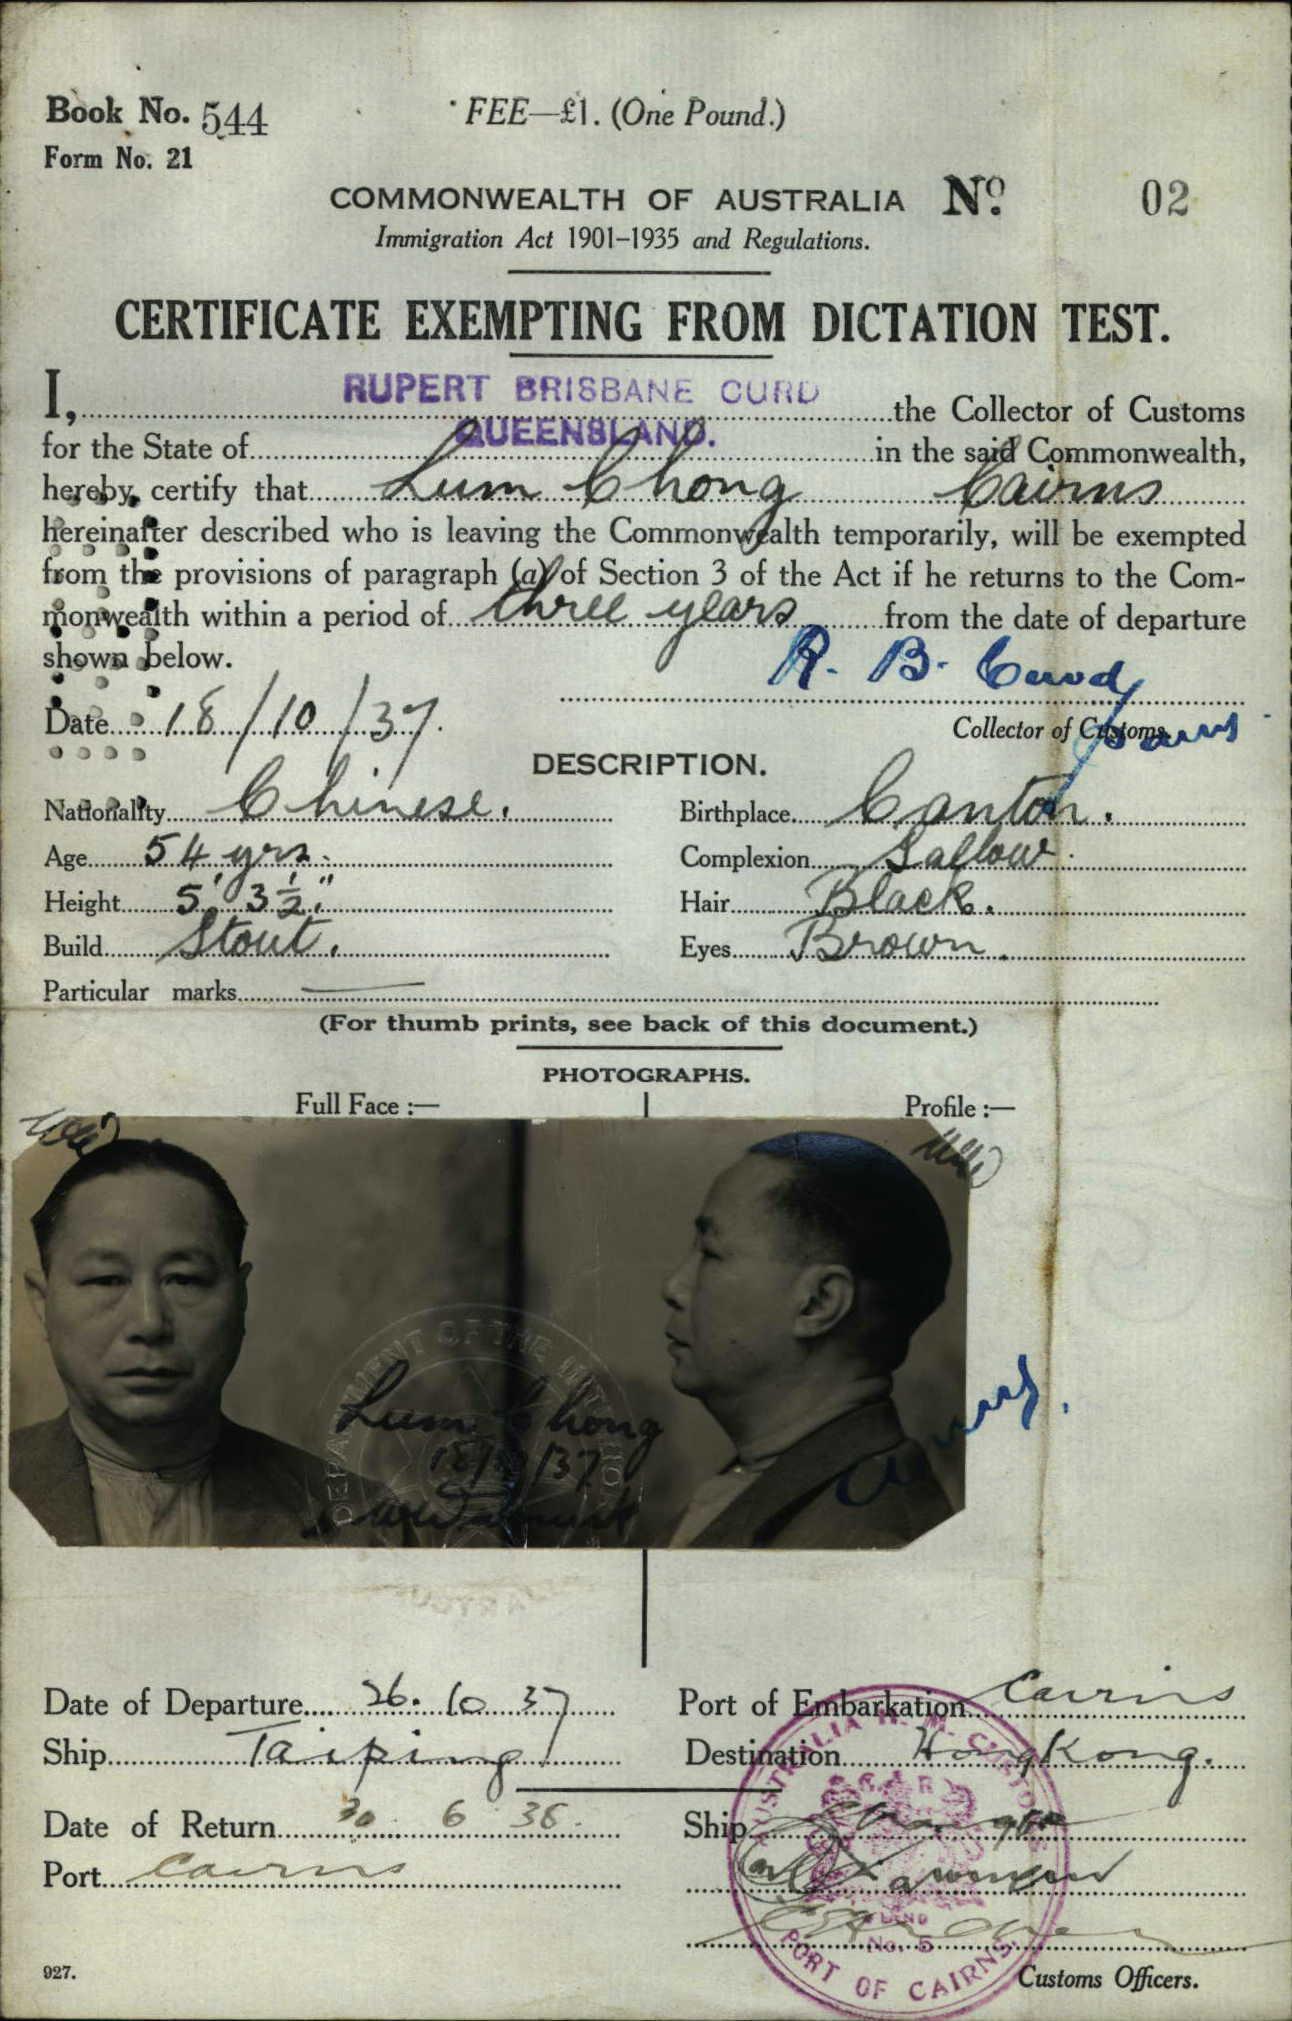 Book No. 544
FEE—£1. (One Pound.)
Form No. 21
COMMONWEALTH OF AUSTRALIA No. 02
Immigration Act 1901–1935 and Regulations.
CERTIFICATE EXEMPTING FROM DICTATION TEST.
I, RUPERT BRISBANE CURD the Collector of Customs
for the State of QUEENSLAND. in the said Commonwealth,
hereby certify that Lum Chong Cairns
hereinafter described who is leaving the Commonwealth temporarily, will be exempted
from the provisions of paragraph (a) of Section 3 of the Act if he returns to the Com-
monwealth within a period of three years from the date of departure
shown below.
R. B. Curd
Date 18/10/37. Collector of Customs.
Cairns
DESCRIPTION.
Nationality Chinese. Birthplace Canton.
Age 54 yrs. Complexion Sallow.
Height 5' 3½" Hair Black.
Build Stout. Eyes Brown.
Particular marks —
(For thumb prints, see back of this document.)
PHOTOGRAPHS.
Full Face :— Profile :—
DEPARTMENT OF THE INTERIOR
Lum Chong
18/10/37
Date of Departure 26.10.37 Port of Embarkation Cairns
Ship Taiping Destination HongKong.
Date of Return 30 6 38. Ship
Port Cairns
AUSTRALIA H. M. CUSTOMS
No. 5
PORT OF CAIRNS
927.
Customs Officers.